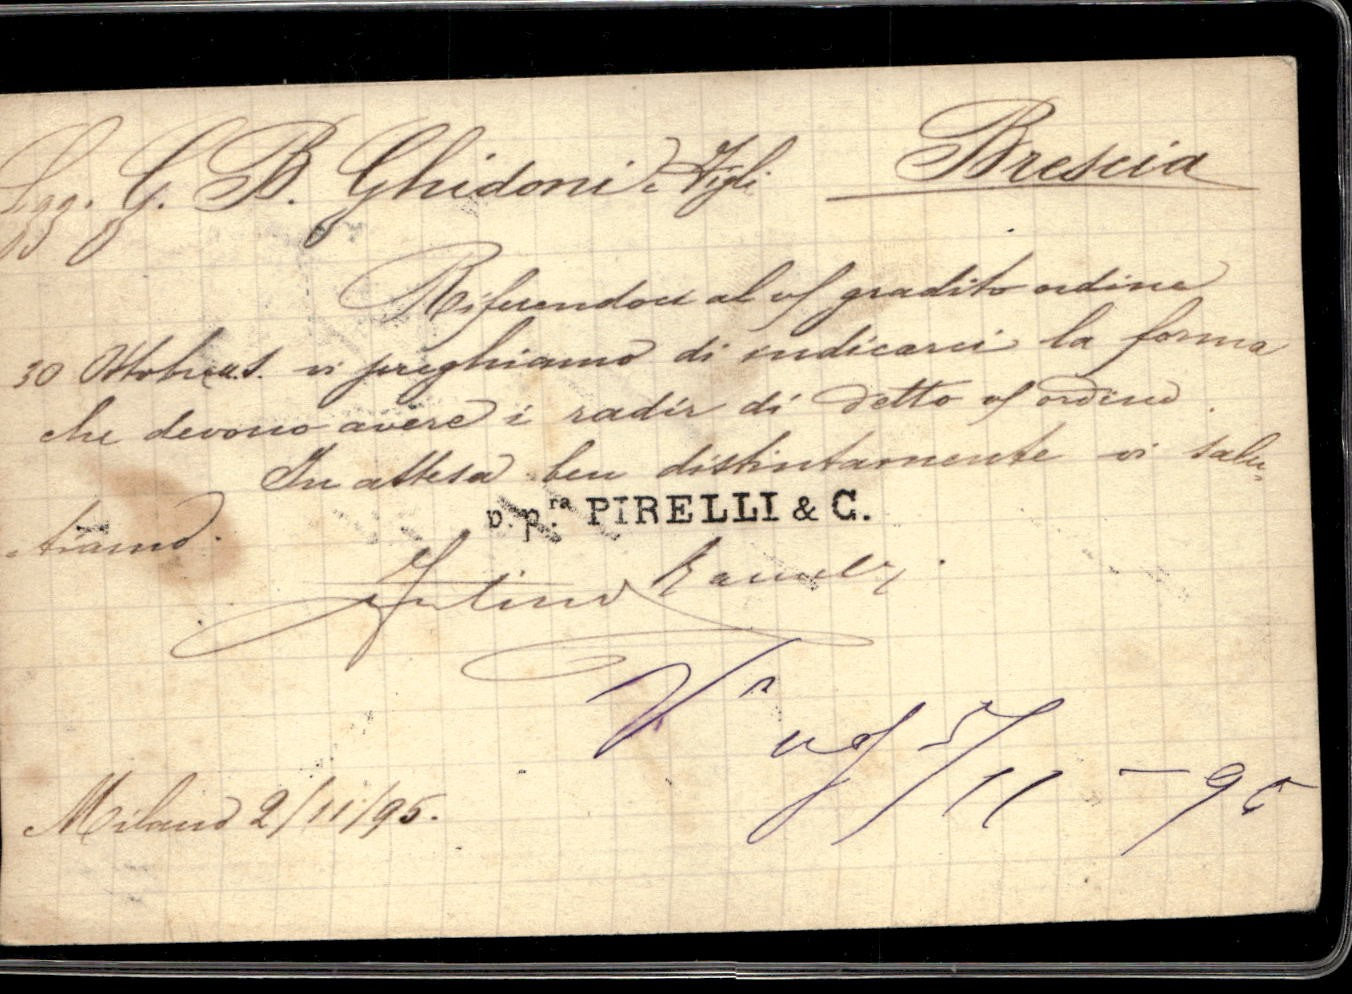 Sigg. G. B. Ghidoni e Figli Brescia
Riferendoci al vs gradito ordine
30 Ottobre u.s. vi preghiamo di indicarci la forma
che devono avere i radir di detto vs ordine.
In attesa ben distintamente vi salu-
tiamo.
p. p.ra PIRELLI & C.
5/11 - 95
Milano 2/11/95.